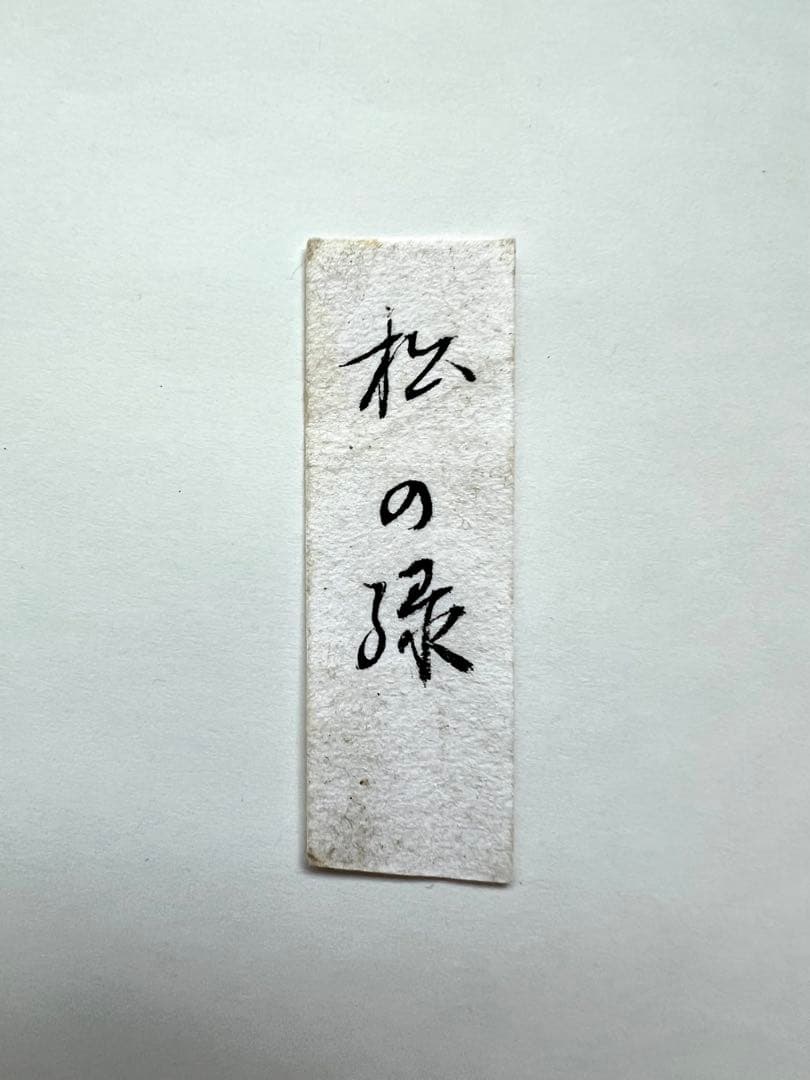 松の緑